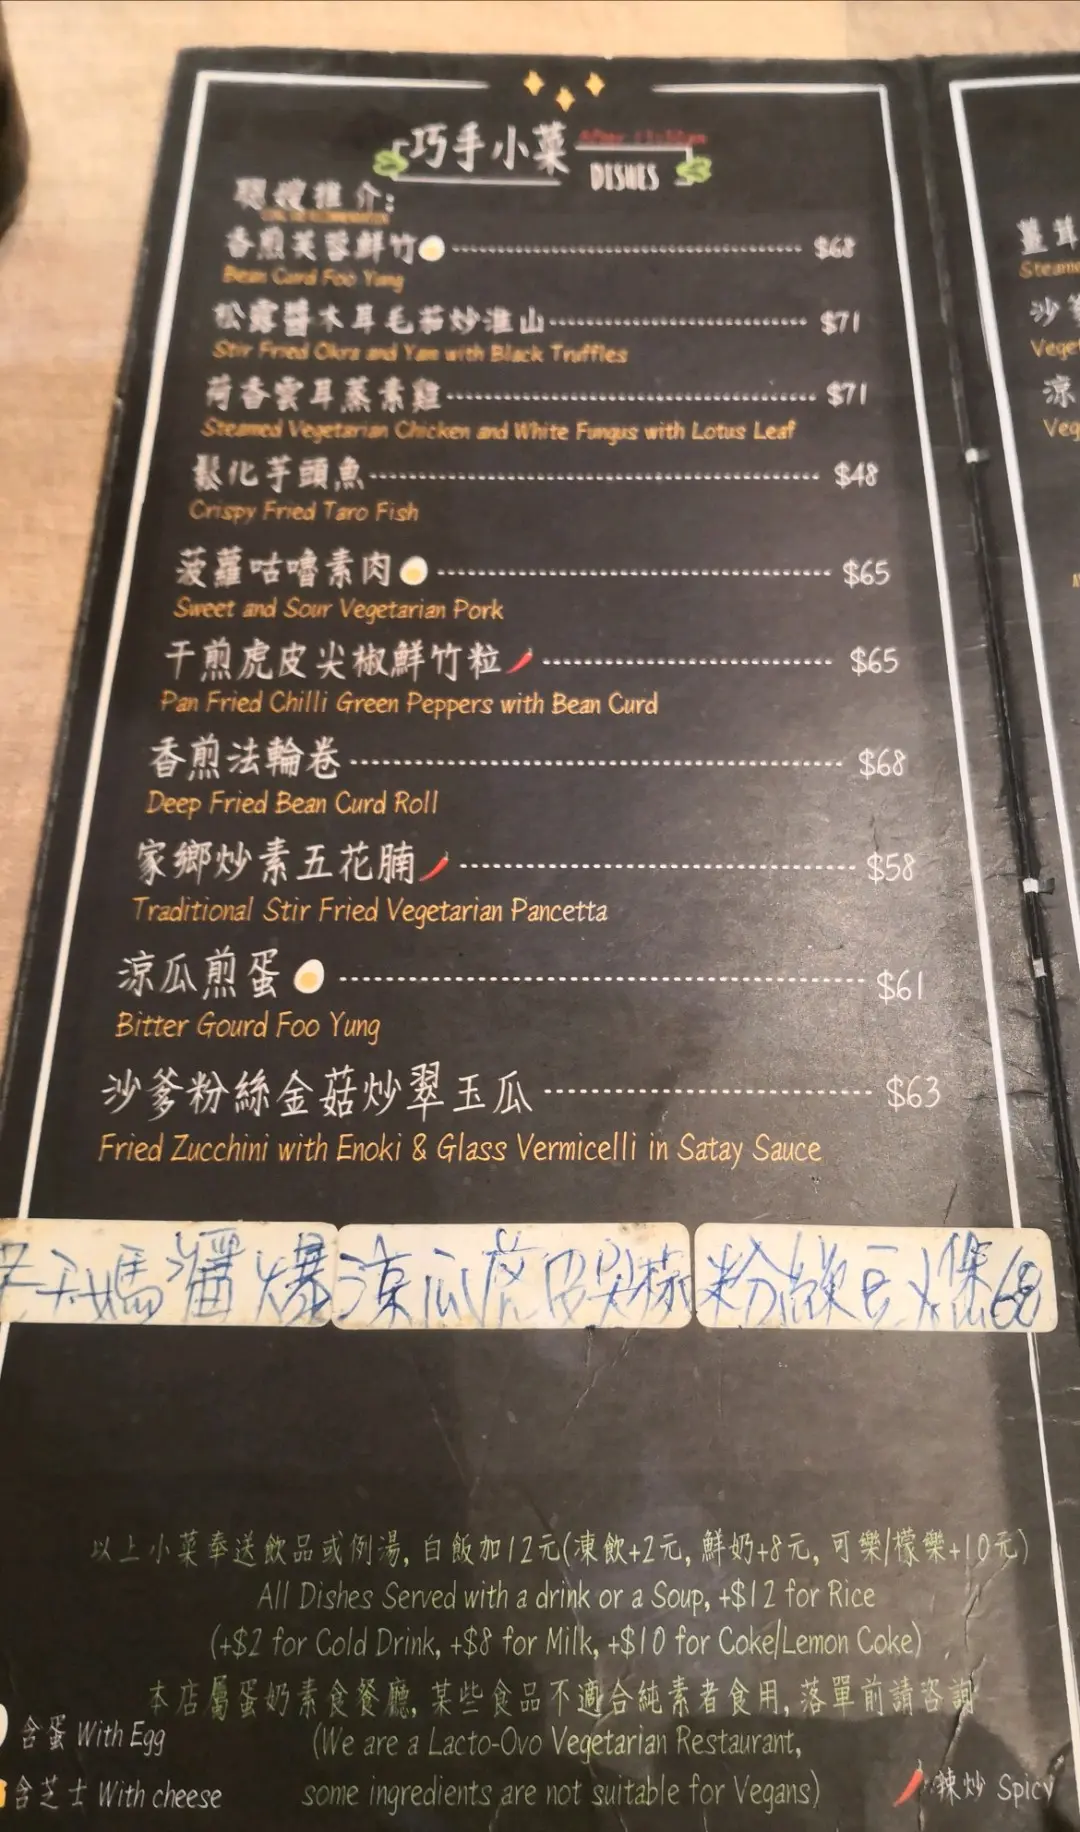 巧手小菜
DISHES
推介:
香煎芙蓉鮮竹 $68
Bean Curd Foo Yung
松露醬木耳毛茄炒淮山 $71
Stir Fried Okra and Yam with Black Truffles
荷香雲耳蒸素雞 $71
Steamed Vegetarian Chicken and White Fungus with Lotus Leaf
鬆化芋頭魚 $48
Crispy Fried Taro Fish
菠蘿咕嚕素肉 $65
Sweet and Sour Vegetarian Pork
干煎虎皮尖椒鮮竹粒 $65
Pan Fried Chilli Green Peppers with Bean Curd
香煎法輪卷 $68
Deep Fried Bean Curd Roll
家鄉炒素五花腩 $58
Traditional Stir Fried Vegetarian Pancetta
涼瓜煎蛋 $61
Bitter Gourd Foo Yung
沙爹粉絲金菇炒翠玉瓜 $63
Fried Zucchini with Enoki & Glass Vermicelli in Satay Sauce
涼瓜虎皮尖椒 粉絲豆 煲68
以上小菜奉送飲品或例湯, 白飯加12元(凍飲+2元, 鮮奶+8元, 可樂/檬樂+10元)
All Dishes Served with a drink or a Soup, +$12 for Rice
(+$2 for Cold Drink, +$8 for Milk, +$10 for Coke/Lemon Coke)
本店屬蛋奶素食餐廳, 某些食品不適合純素者食用, 落單前請咨詢
含蛋 With Egg
(We are a Lacto-Ovo Vegetarian Restaurant,
含芝士 With cheese
some ingredients are not suitable for Vegans)
辣炒 Spicy
薑茸
Steame
沙爹
Veget
涼
Veg